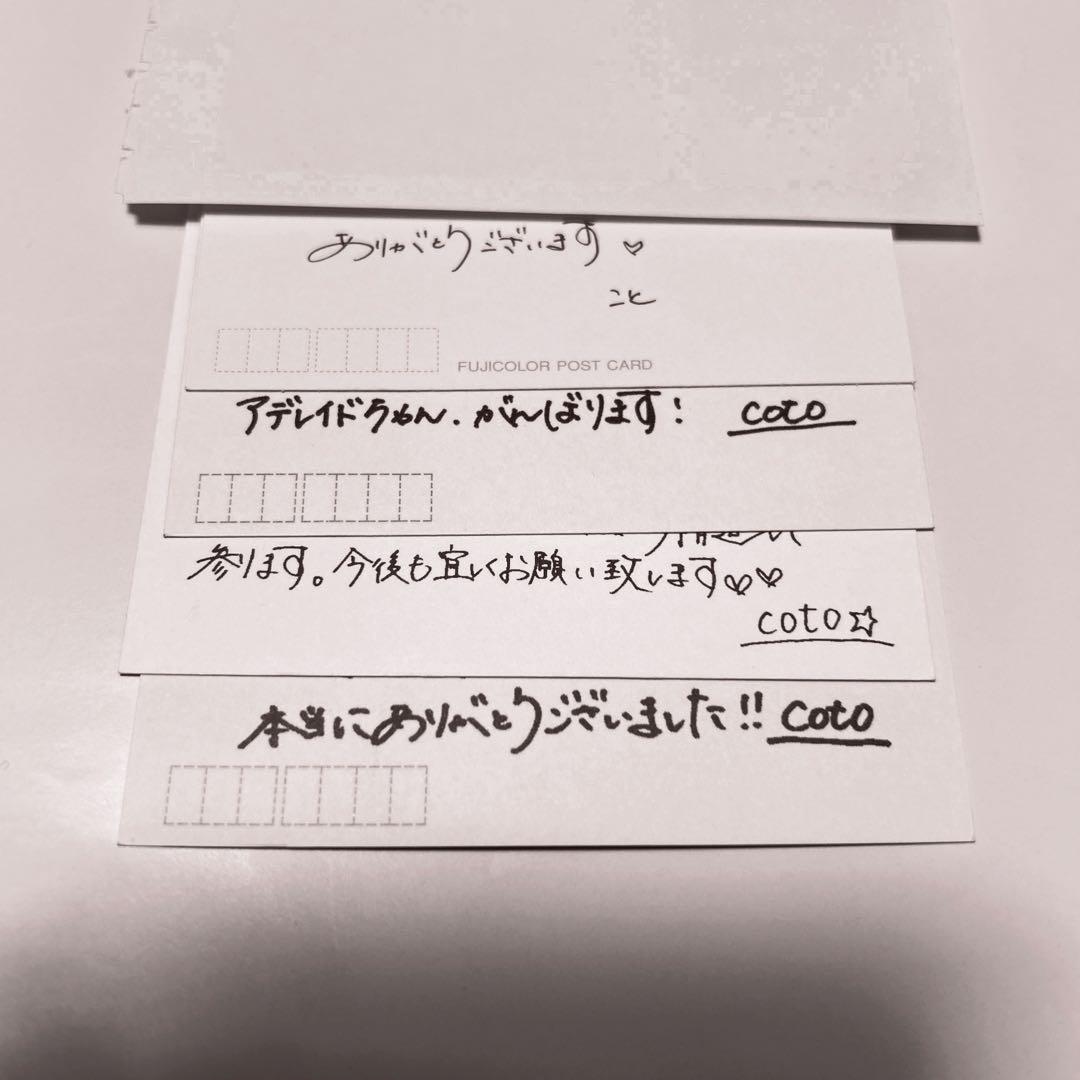 ありがとうございます♡
こと
FUJICOLOR POST CARD
アデレイドちゃん、がんばります! coto
参ります。今後も宜しくお願い致します♡♡
coto☆
本当にありがとうございました!! coto